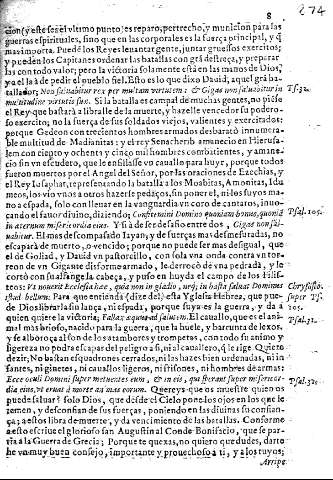 274
8
cion (y este es el vltimo punto) es reparo, pertrecho, y municion para las
guerras espirituales, sino que en las corporales es la fuerça principal, y q̃
mas importa. Puedē los Reyes leuantar gente, juntar gruessos exercitos;
y pueden los Capitanes ordenar las batallas con grã destreça, y preparar
las con todo valor; pero la victoria solamente està en las manos de Dios,
y a el la à de pedir el pueblo fiel. Esto es lo que dixo Dauid, aquel grã ba-
tallador; Non saluabitur rex per multam virtutem: & Gigas non saluabitur in
Ps. 32.
multitudine virtutis suæ. Si la batalla es campal de muchas gentes, no piēse
el Rey que bastarà a libralle de la muerte, y hazelle vencedor su podero-
so exercito; no la fuerça de sus soldados viejos, valientes, y exercitados:
porque Gedeon con trecientos hombres armados desbaratò innumera-
ble multitud de Madianitas: y el rey Senacherib amanecio en Hierusa-
lem con ciento y ochenta y cinco mil hombres combatientes, y amane-
cio sin vn escudero, que le ensillasse vn cauallo para huyr, porque todos
fueron muertos por el Angel del Señor, por las oraciones de Ezechias, y
el Rey Iosaphat, representando la batalla a los Moabitas, Amonitas, Idu
meos, los vio vnos a otros hazerse pedaços, sin poner el, ni los suyos ma-
no a espada, solo con lleuar en la vanguardia vn coro de cantores, inuo-
cando el fauor diuino, diziendo; Confitemini Domino quoniam bonus, quoniã
Psal. 105.
in æternum misericordia eius. Y si à de ser desafio entre dos, Gigas non sal-
uabitur. El mas descompassado Iayan; y de fuerças mas desmesuradas, no
escaparà de muerto, o vencido; porque no puede ser mas desigual, que
el de Goliad, y Dauid vn pastorcillo, con sola vna onda contra vn tor-
reon de vn Gigante disforme armado, le derrocò de vna pedrada, y le
cortò con su alfange la cabeça, y puso en huyda el campo de los Filis-
teos; Vt nouerit Ecclesia hæc, quia non in gladio, neq; in hasta saluat Dominus
Chrysosto.
ipsius bellum. Para que entienda (dize del) esta Yglesia Hebrea, que pue-
super Ps.
de Dios librarla sin lança, ni espada, porque suya es la guerra, y da a
105.
quien quiere la victoria; Fallax equus ad salutem. El cauallo, que es el ani-
Psal. 32.
mal mas brioso, nacido para la guerra, que la huele, y barrunta de lexos,
y se alboroça al son de los atambores y trompetas, con todo su animo y
ligereza no podrà escapar del peligro a si, ni al cauallero, q̃ le rige. Quiero
dezir; No bastan esquadrones cerrados, ni las hazes bien ordenadas, ni in
fantes, ni ginetes, ni cauallos ligeros, ni frisones, ni hombres de armas:
Ecce oculi Domini super metuentes eum, & in eis, qui sperant super misericor-
Psal. 32.
dia eius, vt eruat à morte animas eorum. Quereys que os muestre quien os
puede saluar? Solo Dios, que desde el Cielo pone los ojos en los que le
temen, y desconfian de sus fuerças, poniendo en las diuinas su confian-
ça; a estos libra de muerte, y da vencimiento de las batallas. Conforme
a esto escriue el glorioso san Augustin al Conde Bonifacio, que se par-
tia a la Guerra de Grecia; Porque te quexas, no quiero que dudes, darte
he vn muy buen consejo, importante y prouechoso a ti, y a los tuyos;
Arripe